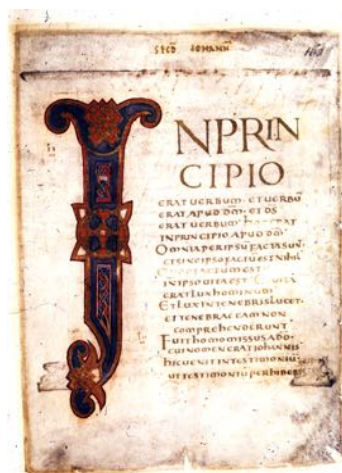 SECD IOHANN
IN PRIN
CIPIO
ERAT UERBUM · ET UERBŪ
ERAT APUD DM̄ · ET DS̄
ERAT UERBUM · HOC ERAT
IN PRINCIPIO APUD DM̄
OMNIA PER IPSŪ FACTA SUN
ET SINE IPSO FACTŪ EST NIHIL
QUOD FACTUM EST
IN IPSO UITA EST · ET UITA
ERAT LUX HOMINUM
ET LUX IN TENEBRIS LUCET ·
ET TENEBRAE EAM NON
COMPREHENDERUNT
FUIT HOMO MISSUS A DŌ
CUI NOMEN ERAT IOHANNIS
HIC UENIT IN TESTIMONIŪ
UT TESTIMONIŪ PERHIBERET